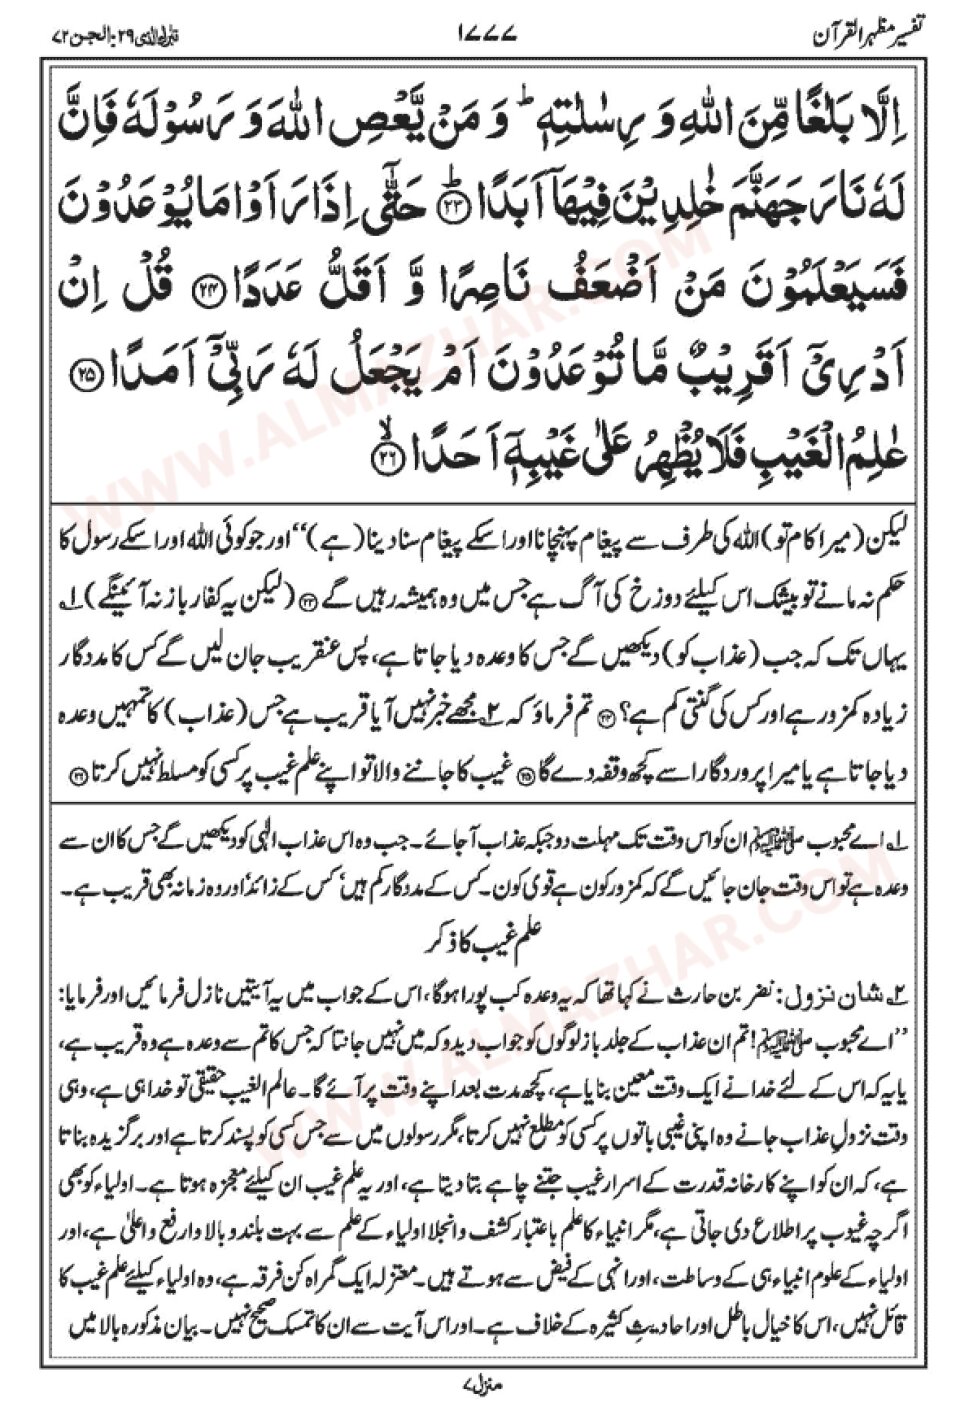 تفسیر مظہر القرآن ۱۷۷۷ تبٰرک الذی ۲۹: الجن ۷۲
اِلَّا بَلٰغًا مِّنَ اللّٰهِ وَ رِسٰلٰتِهٖ ؕ وَ مَنْ يَّعْصِ اللّٰهَ وَ رَسُوْلَهٗ فَاِنَّ
لَهٗ نَارَ جَهَنَّمَ خٰلِدِيْنَ فِيْهَاۤ اَبَدًا ؕ ﴿۲۳﴾ حَتّٰۤى اِذَا رَاَوْا مَا يُوْعَدُوْنَ
فَسَيَعْلَمُوْنَ مَنْ اَضْعَفُ نَاصِرًا وَّ اَقَلُّ عَدَدًا ﴿۲۴﴾ قُلْ اِنْ
اَدْرِىْۤ اَقَرِيْبٌ مَّا تُوْعَدُوْنَ اَمْ يَجْعَلُ لَهٗ رَبِّىْۤ اَمَدًا ﴿۲۵﴾
عٰلِمُ الْغَيْبِ فَلَا يُظْهِرُ عَلٰى غَيْبِهٖۤ اَحَدًا ۙ ﴿۲۶﴾
لیکن (میرا کام تو) اللہ کی طرف سے پیغام پہنچانا اور اسکے پیغام سنا دینا (ہے)‘‘ اور جو کوئی اللہ اور اسکے رسول کا
حکم نہ مانے تو بیشک اس کیلئے دوزخ کی آگ ہے جس میں وہ ہمیشہ رہیں گے ﴿۲۳﴾ (لیکن یہ کفار باز نہ آئینگے) ۱؎
یہاں تک کہ جب (عذاب کو) دیکھیں گے جس کا وعدہ دیا جاتا ہے، پس عنقریب جان لیں گے کس کا مددگار
زیادہ کمزور ہے اور کس کی گنتی کم ہے؟ ﴿۲۴﴾ تم فرماؤ کہ ۲؎ مجھے خبر نہیں آیا قریب ہے جس (عذاب) کا تمہیں وعدہ
دیا جاتا ہے یا میرا پروردگار اسے کچھ وقفہ دے گا ﴿۲۵﴾ غیب کا جاننے والا تو اپنے علم غیب پر کسی کو مسلط نہیں کرتا ﴿۲۶﴾
۱؎ اے محبوب ﷺ ان کو اس وقت تک مہلت دو جبکہ عذاب آ جائے۔ جب وہ اس عذاب الٰہی کو دیکھیں گے جس کا ان سے
وعدہ ہے تو اس وقت جان جائیں گے کہ کمزور کون ہے قوی کون۔ کس کے مددگار کم ہیں‘ کس کے زائد‘ اور وہ زمانہ بھی قریب ہے۔
علم غیب کا ذکر
۲؎ شان نزول: نضر بن حارث نے کہا تھا کہ یہ وعدہ کب پورا ہوگا، اس کے جواب میں یہ آیتیں نازل فرمائیں اور فرمایا:
’’اے محبوب ﷺ! تم ان عذاب کے جلد باز لوگوں کو جواب دیدو کہ میں نہیں جانتا کہ جس کا تم سے وعدہ ہے وہ قریب ہے،
یا یہ کہ اس کے لئے خدا نے ایک وقت معین بنایا ہے، کچھ مدت بعد اپنے وقت پر آئے گا۔ عالم الغیب حقیقی تو خدا ہی ہے، وہی
وقت نزولِ عذاب جانے وہ اپنی غیبی باتوں پر کسی کو مطلع نہیں کرتا، مگر رسولوں میں سے جس کسی کو پسند کرتا ہے اور برگزیدہ بناتا
ہے، کہ ان کو اپنے کارخانہ قدرت کے اسرار غیب جتنے چاہے بتا دیتا ہے، اور یہ علم غیب ان کیلئے معجزہ ہوتا ہے۔ اولیاء کو بھی
اگرچہ غیوب پر اطلاع دی جاتی ہے، مگر انبیاء کا علم باعتبار کشف و انجلا اولیاء کے علم سے بہت بلند و بالا و ارفع و اعلیٰ ہے، اور
اولیاء کے علوم انبیاء ہی کے وساطت، اور انہی کے فیض سے ہوتے ہیں۔ معتزلہ ایک گمراہ کن فرقہ ہے، وہ اولیاء کیلئے علم غیب کا
قائل نہیں، اس کا خیال باطل اور احادیثِ کثیرہ کے خلاف ہے۔ اور اس آیت سے ان کا تمسک صحیح نہیں۔ بیان مذکورہ بالا میں
منزل ۷
WWW.ALMAZHAR.COM
WWW.ALMAZHAR.COM